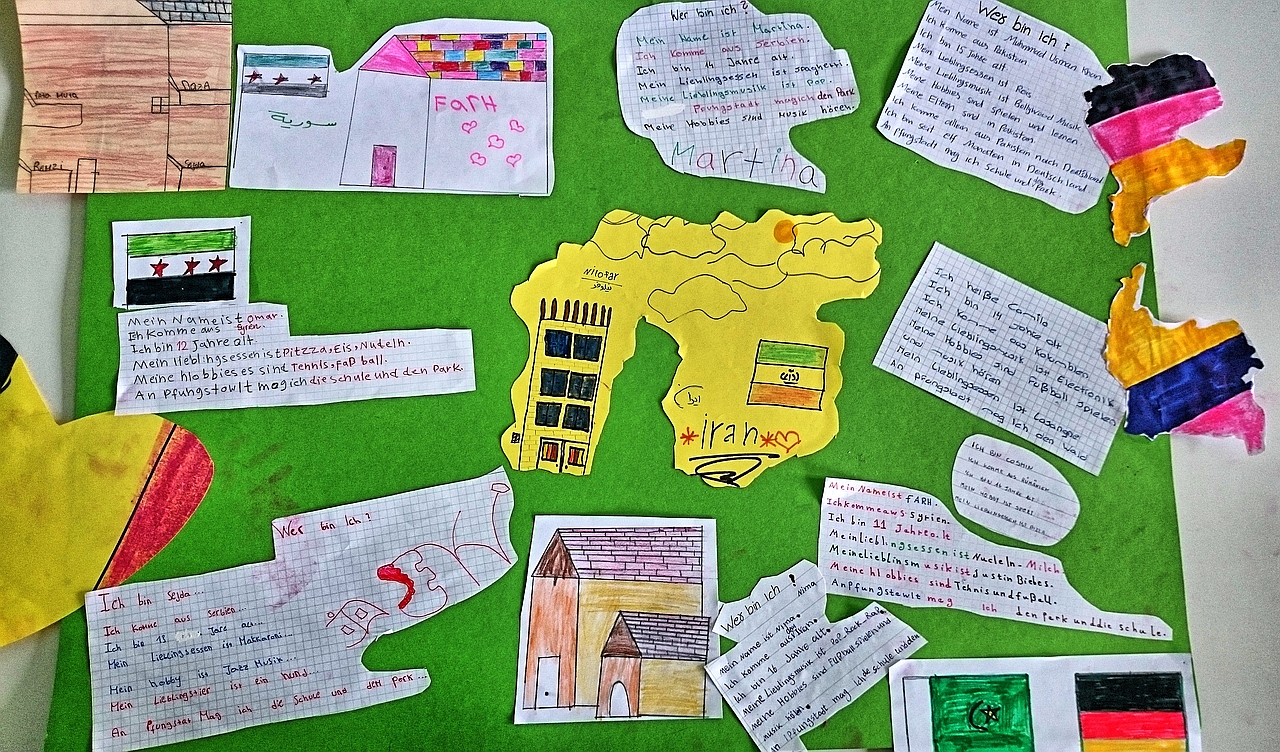 Aba Huta
NazA
Remzi
Sejda
سورية
FARH
Wer bin ich?
Mein Name ist Martina.
Ich komme aus Serbien.
Ich bin 14 Jahre alt.
Mein Lieblingsessen ist Spaghetti.
Meine Lieblingsmusik ist Pop.
Pfungstadt mag ich den Park
Meine Hobbies sind Musik hören.
Martina
Wer bin ich?
Mein Name ist Muhammad Usman Khan
Ich komme aus Pakistan
Ich bin 15 Jahre alt
Mein Lieblingsessen ist Reis
Meine Lieblingsmusik ist Bollywood Musik
Meine Hobbies sind spielen und lesen
Meine Eltern sind in Pakistan.
Ich komme allein aus Pakistan nach Deutschland
Ich bin seit elf Monaten in Deutschland.
An Pfungstadt mag ich Schule und Park.
Mein Name ist omar.
Ich komme aus Syrien.
Ich bin 12 Jahre alt.
Mein Lieblingsessen ist Pitzza, Eis, Nudeln.
Meine hlobbies es sind Tennis, faß ball.
An Pfungstowlt mag ich die schule und den Park.
Nilofar
نیلوفر
iran
Ich heiße Camilo
Ich bin 14 Jahre alt
Ich komme aus Kolumbien
Meine Lieblingsmusik ist Electronik
Meine Hobbies sind Fußball spielen
und musik hören
Mein Lieblingsessen ist Lasangne
An pfengstadt mag ich den Wald
ICH BIN COSMIN
ICH KOMME AUS RUMÄNIEN
ICH BIN 14 JAHRE ALT
MEIN HOBBY IST SPORT
MEIN LIEBLINGSESSEN IST PIZZA
Mein Name ist FARH.
Ich komme aws Syrien.
Ich bin 11 Jahre alt
Mein lieblingsessen ist Nudeln-Milch
Meine lieblinsmusik ist Justin Biebes.
Meine hlobbies sind Tehnis und fußall.
An pfungstowlt mag ich den perk und die schule.
Wer bin Ich?
SEJ
Ich bin Sejda...
Ich komme aus Serbien...
Ich bin 13 Jare alt...
Mein Lieblingsessen ist Makkaroni...
Mein hobby ist Jazz Musik...
Mein Lieblingstier ist ein hund...
An Pfungstat Mag ich die Schule und den Park...
Wer bin ich?
Mein Name ist Nima.
Ich komme aus Iran.
Ich bin 16 Jahre alt.
Meine Lieblingsmusik ist Pop, Rock, Rap.
Meine Hobbies sind Fußball spielen und
musik hören.
An Pfungstadt mag ich die schule